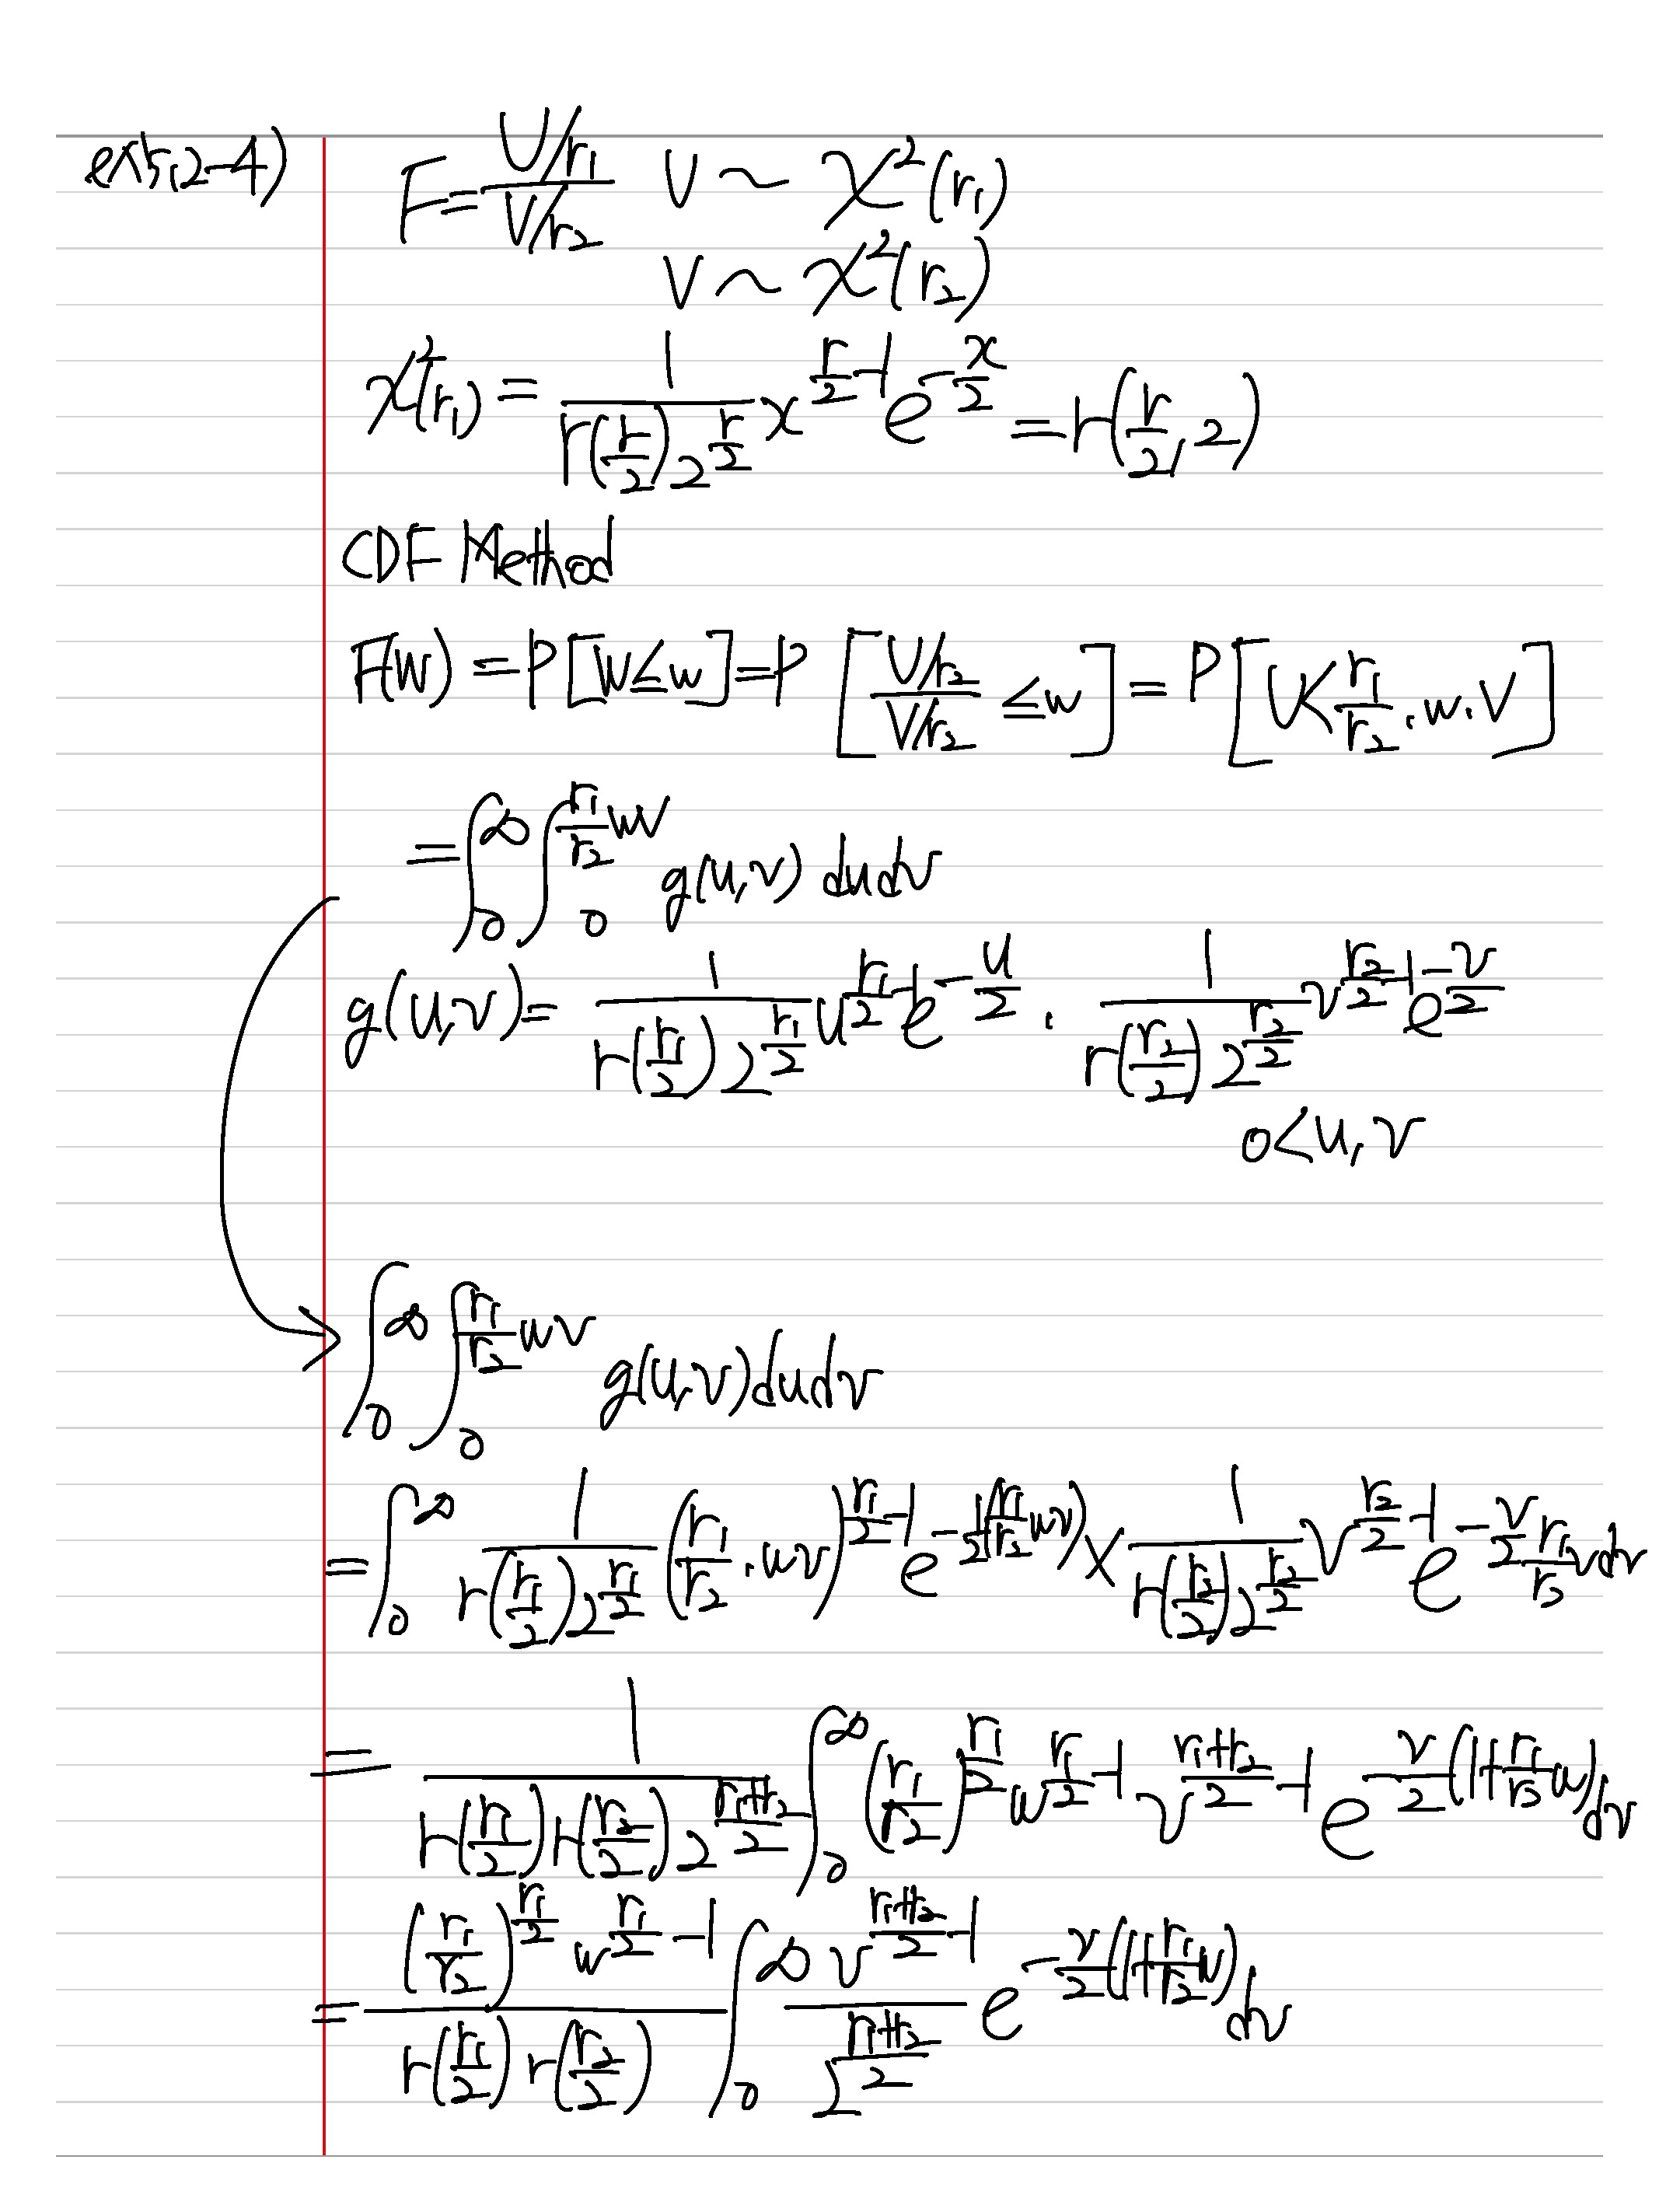 ex5.2-4)
F = (U/r₁)/(V/r₂)  U ~ χ²(r₁)
V ~ χ²(r₂)
χ²(r₁) = 1/(Γ(r/2) 2^(r/2)) x^(r/2 - 1) e^(-x/2) = Γ(r/2, 2)
CDF Method
F(W) = P[W ≤ w] = P[(U/r₂)/(V/r₂) ≤ w] = P[U < r₁/r₂ · w · V]
= ∫₀^∞ ∫₀^(r₁/r₂ wv) g(u,v) du dv
g(u,v) = 1/(Γ(r₁/2) 2^(r₁/2)) u^(r₁/2 - 1) e^(-u/2) · 1/(Γ(r₂/2) 2^(r₂/2)) v^(r₂/2 - 1) e^(-v/2)
0 < u, v
∫₀^∞ ∫₀^(r₁/r₂ wv) g(u,v) du dv
= ∫₀^∞ 1/(Γ(r₁/2) 2^(r₁/2)) (r₁/r₂ · wv)^(r₁/2 - 1) e^(-1/2 (r₁/r₂ wv)) × 1/(Γ(r₂/2) 2^(r₂/2)) v^(r₂/2 - 1) e^(-v/2) r₁/r₂ v dv
= 1/(Γ(r₁/2) Γ(r₂/2) 2^((r₁+r₂)/2)) ∫₀^∞ (r₁/r₂)^(r₁/2) w^(r₁/2 - 1) v^((r₁+r₂)/2 - 1) e^(-v/2 (1 + r₁/r₂ w)) dv
= ((r₁/r₂)^(r₁/2) w^(r₁/2 - 1))/(Γ(r₁/2) Γ(r₂/2)) ∫₀^∞ v^((r₁+r₂)/2 - 1)/2^((r₁+r₂)/2) e^(-v/2 (1 + r₁/r₂ w)) dv